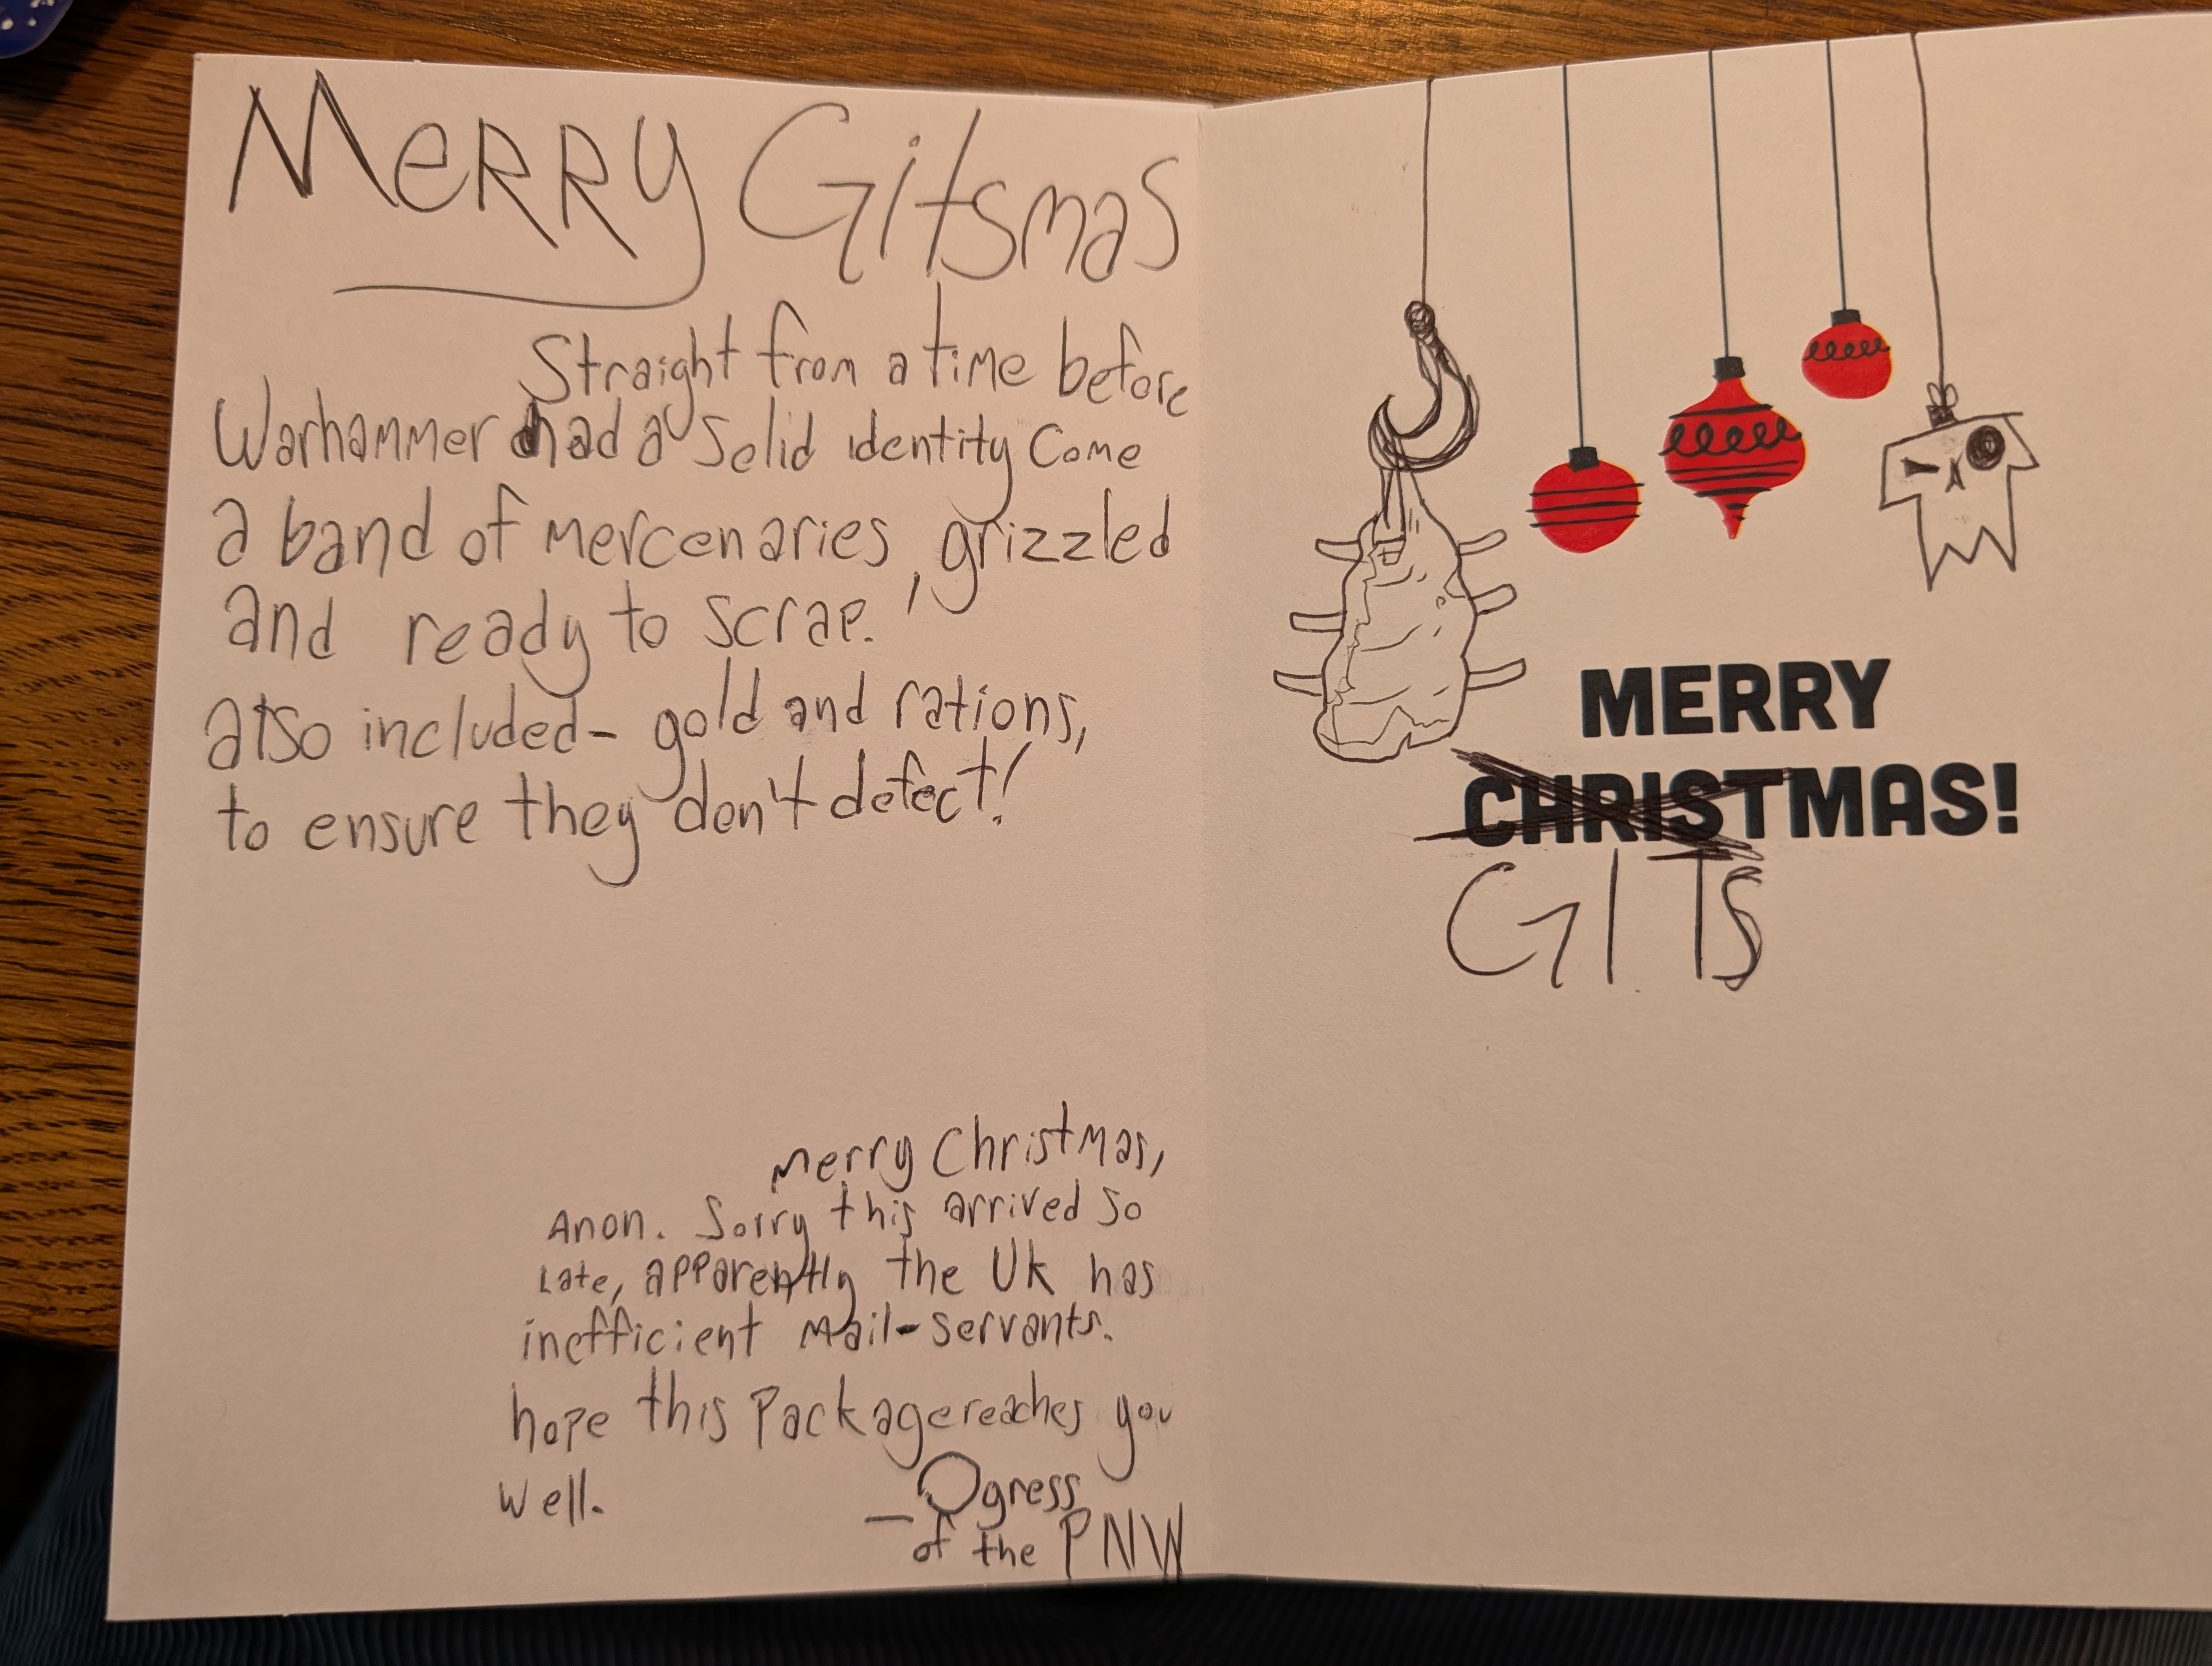 Merry Gitsmas
Straight from a time before
Warhammer had a solid identity come
a band of mercenaries, grizzled
and ready to scrap.
also included- gold and rations,
to ensure they don't defect!
merry Christmas,
Anon. Sorry this arrived so
Late, apparently the Uk has
inefficient Mail-servants.
hope this Package reaches you
well.
—Ogress
of the PNW
MERRY
CHRISTMAS!
GITS